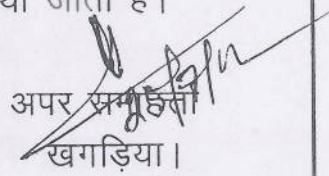 जाता है।
अपर समाहर्ता
खगड़िया।